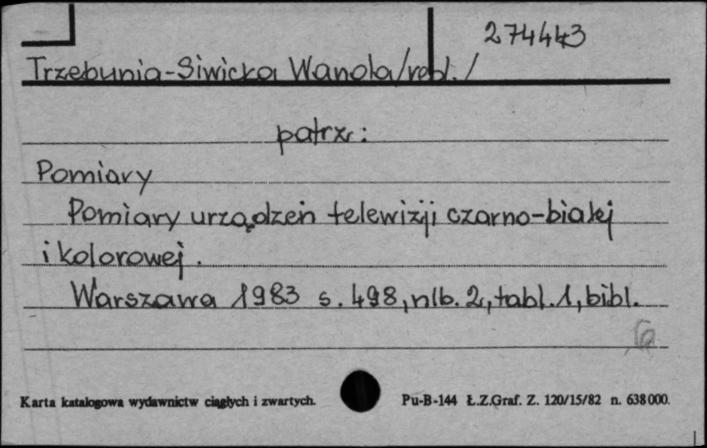 274443
Trzebunia-Siwicka Wanda/red./
patrz:
Pomiary
Pomiary urządzeń telewizji czarno-białej
i kolorowej.
Warszawa 1983 s. 498, nlb. 2, tabl. 1, bibl.
Karta katalogowa wydawnictw ciągłych i zwartych. Pu-B-144 Ł.Z.Graf. Z. 120/15/82 n. 638000.